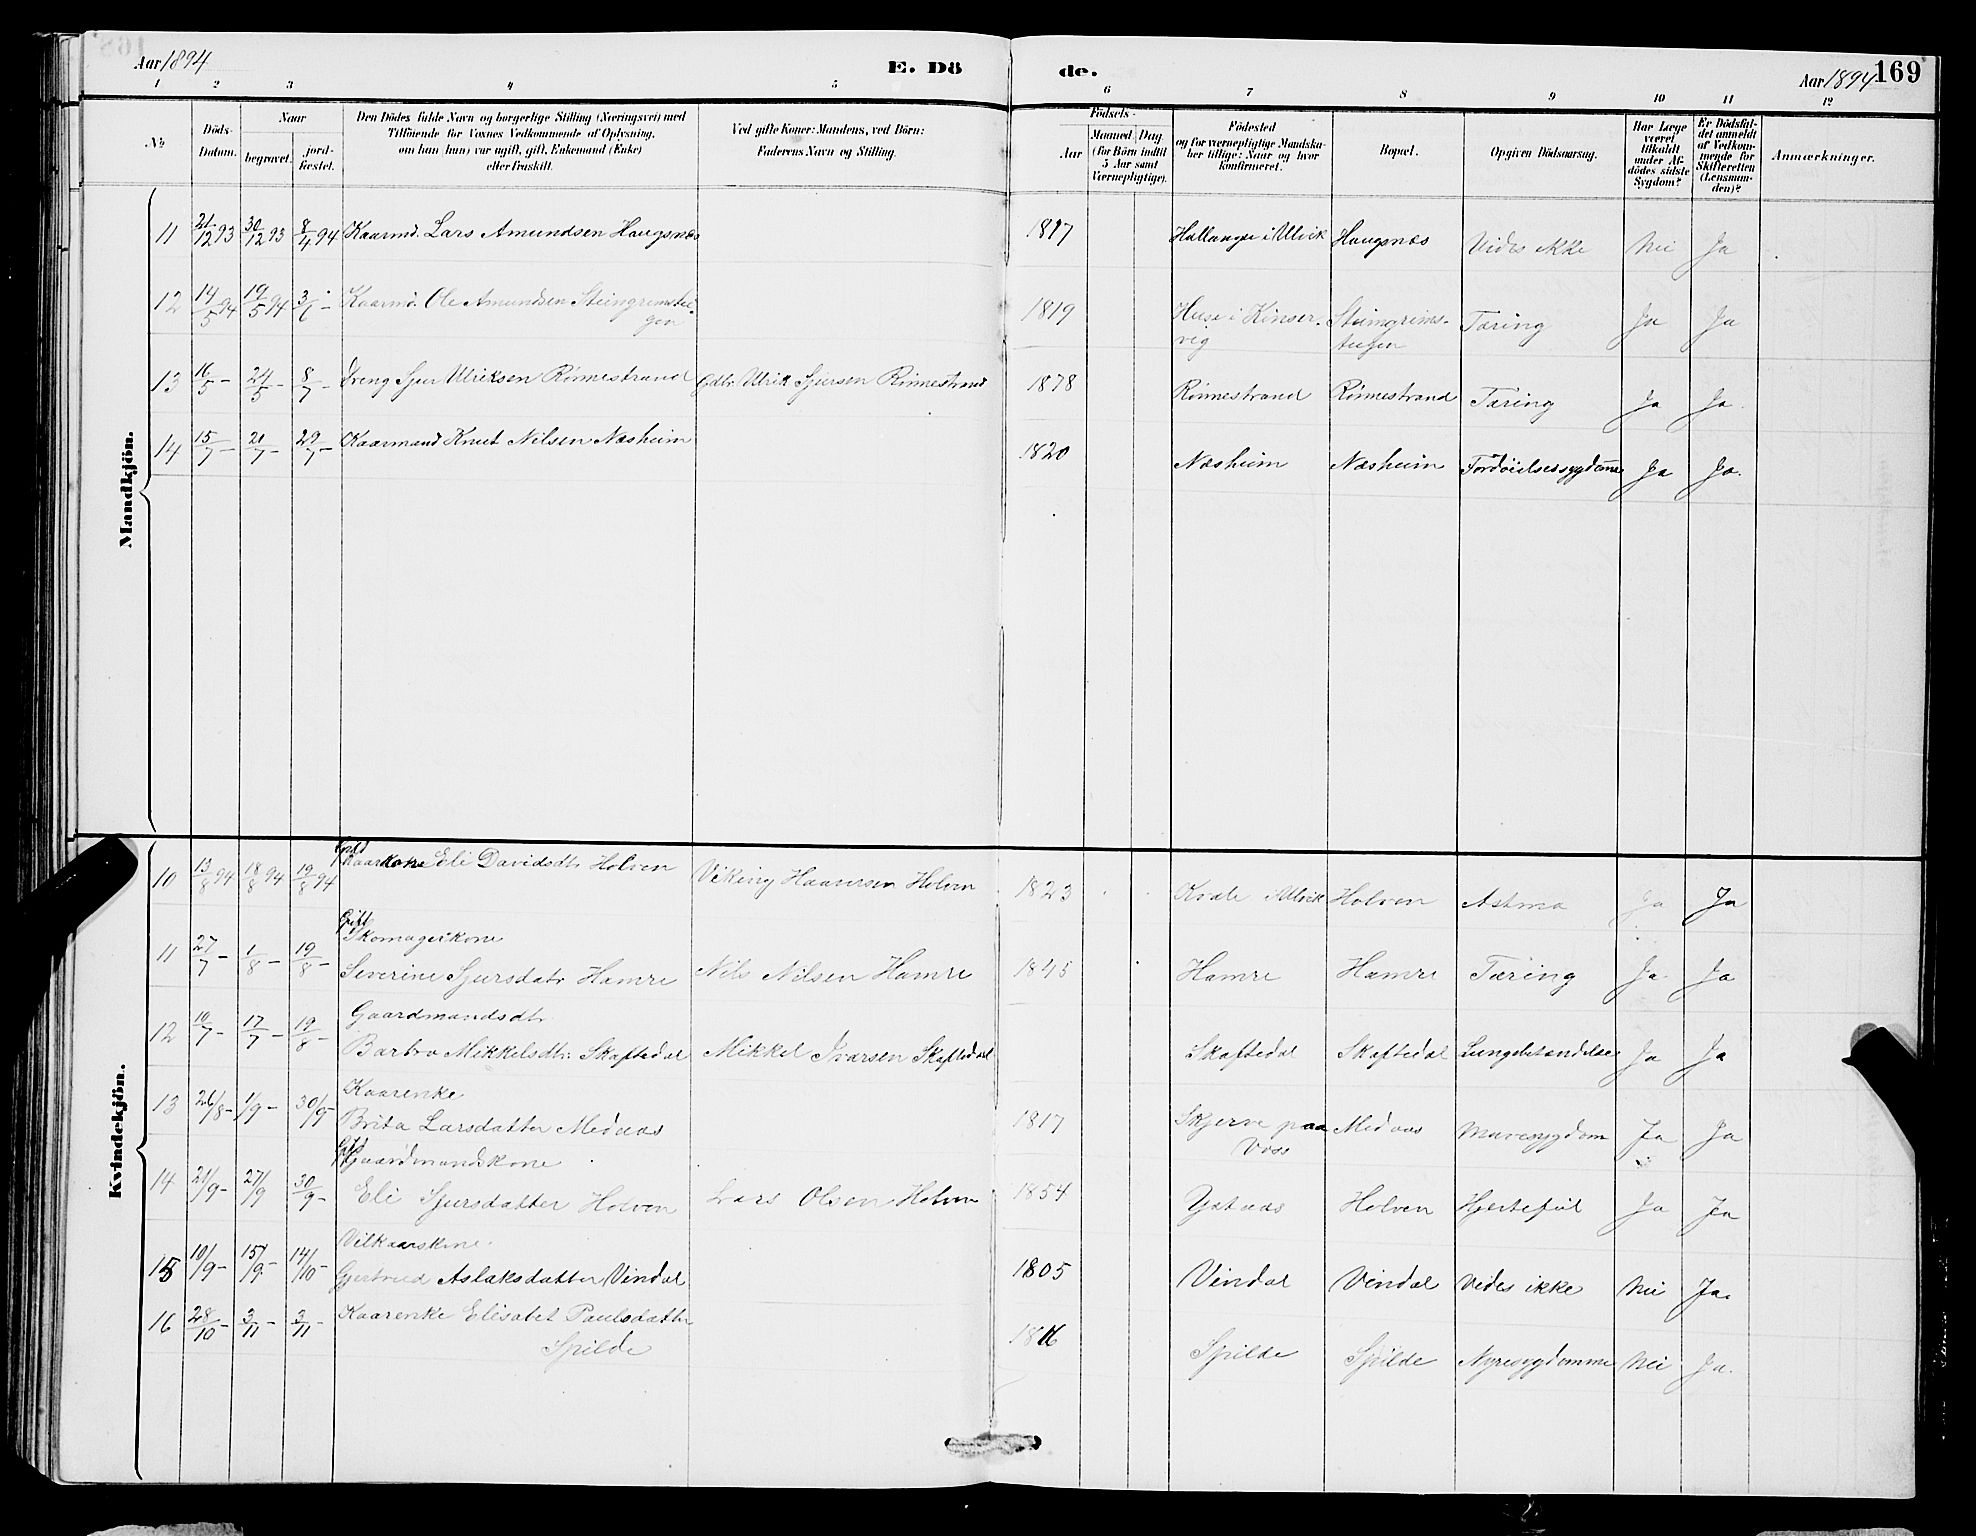 Aar 1894
E. Dö
de.
Aar 1894
169
1 2 3 4 5 6 7 8 9 10 11 12
No
Döds-
Datum.
Naar
begravet.
jord-
fæstet.
Den Dödes fulde Navn og borgerlige Stilling (Næringsvei) med
Tilföiende for Voxnes Vedkommende af Oplysning,
om han (hun) var ugift, gift, Enkemand (Enke)
eller fraskilt.
Ved gifte Koner: Mandens, ved Börn:
Faderens Navn og Stilling.
Födsels-
Aar
Maaned Dag
(for Börn indtil
5 Aar samt
Værnepligtige).
Födested
og for værnepligtige Mandska-
ber tillige: Naar og hvor
konfirmeret.
Bopæl.
Opgiven Dödsaarsag.
Har Læge
været
tilkaldt
under Af-
dödes sidste
Sygdom?
Er Dödsfal-
det anmeldt
af Vedkom-
mende for
Skifteretten
(Lensman-
den)?
Anmærkninger.
Mandkjön.
11 21/12 93 30/12 93 8/4 94 Kaarmd. Lars Amundsen Haugsnæs 1817 Hallanger i Ulvik Haugsnæs Vides ikke Nei Ja
12 14/5 94 19/5 94 3/6 - Kaarmd. Ole Amundsen Steingrimstei- 1819 Huse i Kinser- Steingrims- Tæring Ja Ja
gen vig teigen
13 16/5 - 24/5 - 8/7 - Dreng Sjur Ulriksen Rönnestrand Gdbr. Ulrik Sjursen Rönnestrand 1878 Rönnestrand Rönnestrand Tæring Ja Ja.
14 15/7 - 21/7 - 29/7 - Kaarmand Knut Nilsen Næsheim 1820 Næsheim Næsheim Fordöielsessygdomme Ja Ja.
Kvindekjön.
Gift
10 13/8 94 18/8 94 19/8 94 Kaarkone Eli Davidsdtr Holven Viking Haaversen Holven 1823 Kvale i Ulvik Holven Astma Ja Ja
Gift
Skomagerkone
11 27/7 - 1/8 - 19/8 - Severine Sjursdatr Hamre Nils Nilsen Hamre 1845 Hamre Hamre Tæring Ja Ja
Gaardmandsdtr.
12 10/7 - 17/7 - 19/8 - Barbro Mikkelsdtr. Skaftedal Mikkel Ivarsen Skaftedal Skaftedal Skaftedal Lungebetændelse Ja Ja
Kaarenke
13 26/8 - 1/9 - 30/9 - Brita Larsdatter Medaas 1817 Skjerve paa Medaas Mavesygdom Ja Ja
Voss
Gift
Gaardmandskone
14 21/9 - 27/9 30/9 - Eli Sjursdatter Holven Lars Olsen Holven 1854 Ystaas Holven Hjertefeil Ja Ja
Vilkaarskone
15 10/9 - 15/9 - 14/10 - Gjertrud Aslaksdatter Vindal 1805 Vindal Vindal Vides ikke Nei Ja.
16 28/10 - 3/11 - 3/11 - Kaarenke Elisabet Paulsdatter 1816 Spilde Spilde Nyresygdomme Nei Ja.
Spilde